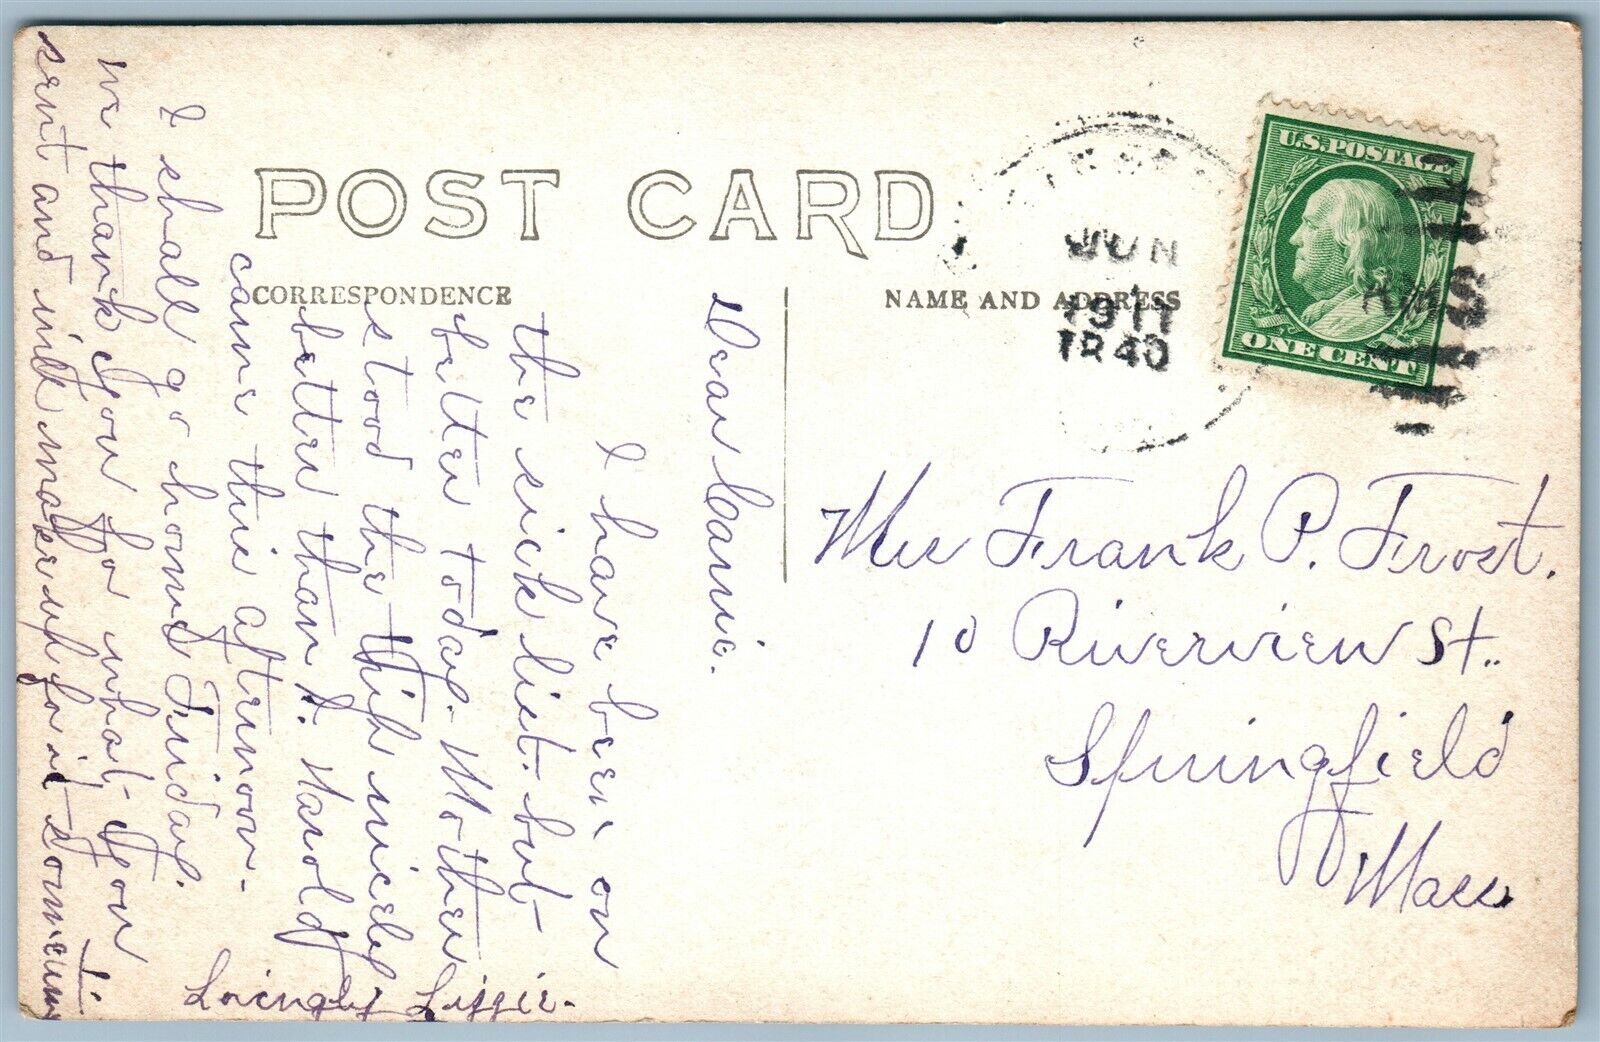 POST CARD
CORRESPONDENCE
NAME AND ADDRESS
U.S. POSTAGE
ONE CENT
JUN
1911
RMS
Dear Carrie.
I have been on
the sick list. but
better today. Mother
stood the trip nicely
better than I. Harold
came this afternoon.
I shall go home Friday.
we thank you for what you
sent and will make up for it
Lovingly Lizzie.
Mrs Frank P. Frost.
10 Riverview St.
Springfield
Mass.